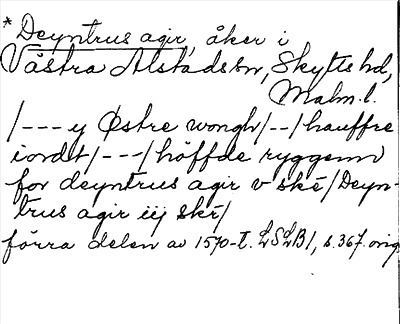 * Deyntrus agir, åker i
Västra Alstads sn, Skytts hd,
Malm.l.
/---y Østre wongh/--/hauffre
iordt/---/höffde ryggenn
for deyntrus agir v skē/Deyn-
trus agir iij skē/
förra delen av 1570-t. LSLB1, s.367.orig